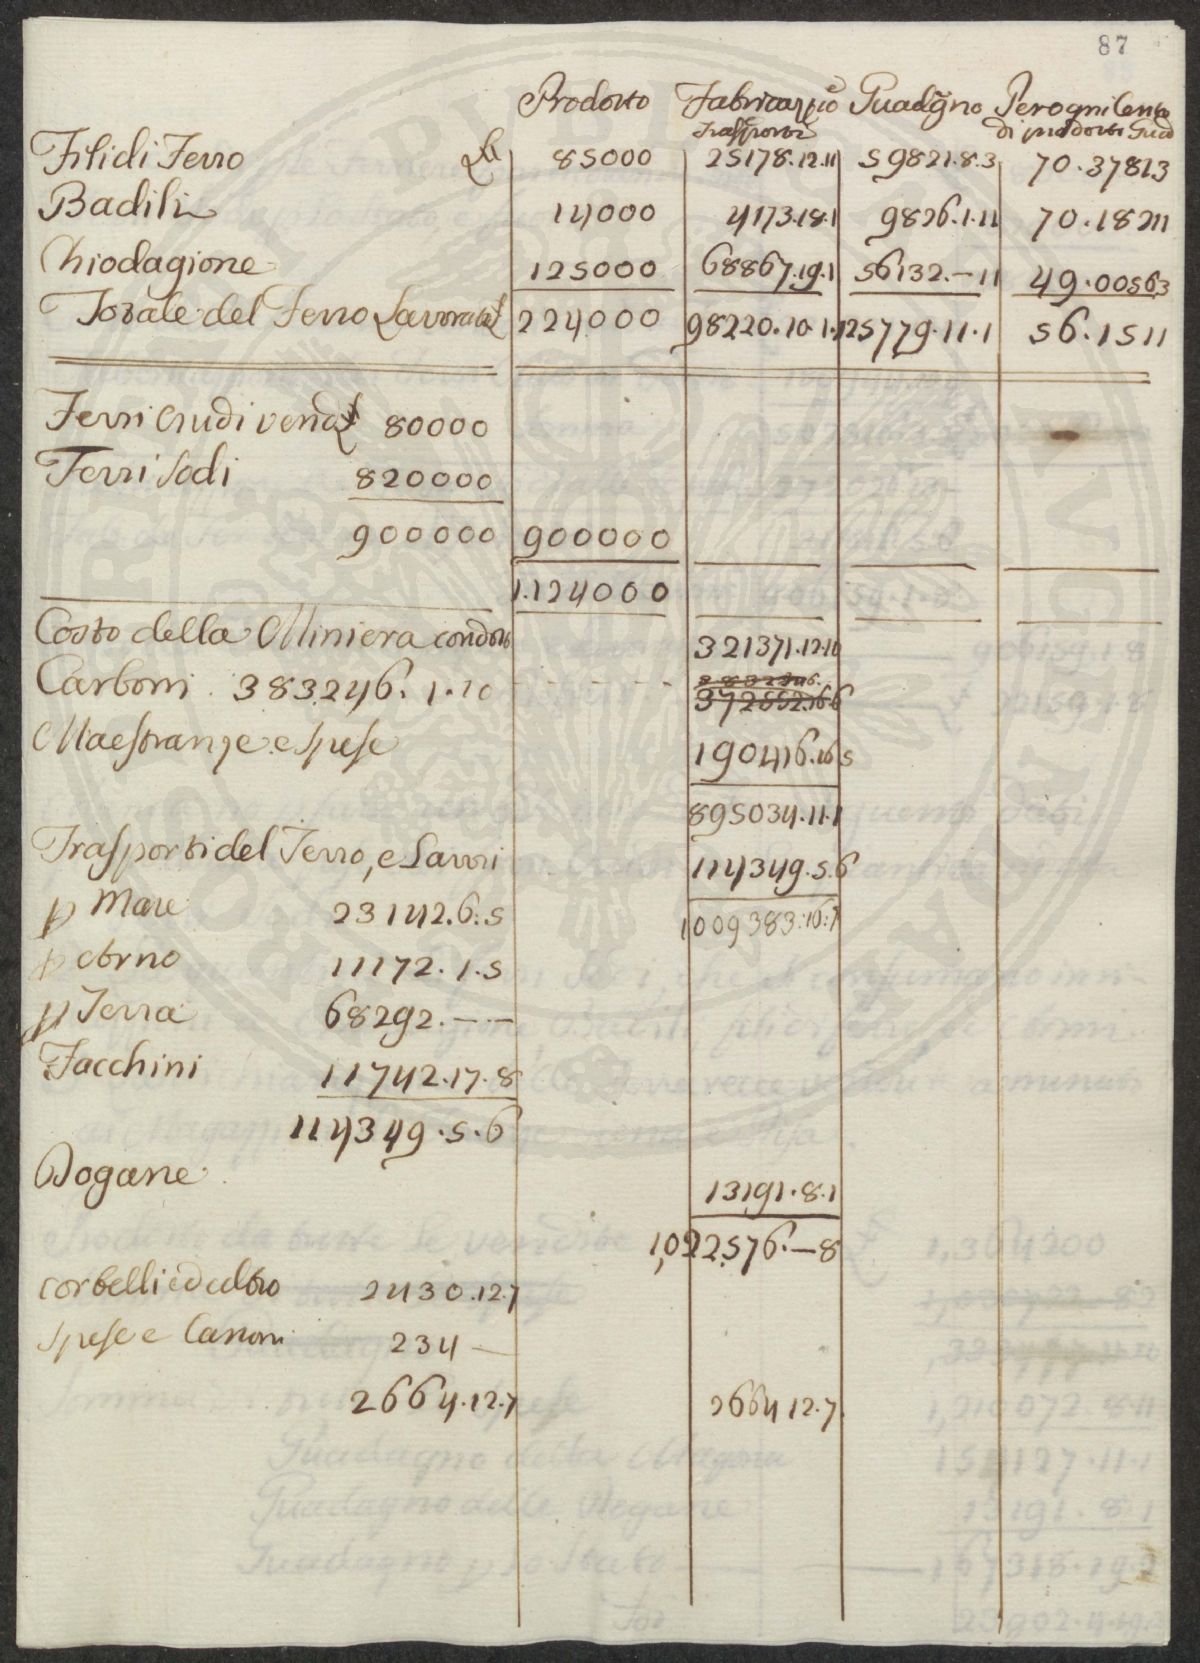 87
Prodotto Fabricazzio͞e Guad͞gno Per ogni Cento
Trasporti di prodotti Guad
Fili di Ferro La 85000 25178.12.11 59821.8.3 70.37813
Badili 14000 4173.18.1 9826.1.11 70.18211
Chiodagione 125000 68867.19.1 56132.—11 49.00563
Totale del Ferro Lavorato £ 224000 98220.10.1 125779.11.1 56.1511
Ferri Crudi vend £ 80000
Ferri Sodi 820000
900000 900000
1.124000
Costo della Miniera condotto 321371.12.10
Carboni 383246.1.10 - - - - - - 383246.
372552.16.6
Maestranze e spese 190416.16.5
895034.11.1
Trasporti del Ferro, e Lavori 114349.5.6
p Mare 23142.6.5 1009383.16.7
p Arno 11172.1.5
p Terra 68292.—.—
Facchini 11742.17.8
114349.5.6
Dogane 13191.8.1
1,022,576.—8
corbelli ed altro 2430.12.7
spese e Canoni 234 —
2664.12.7 2664 12.7